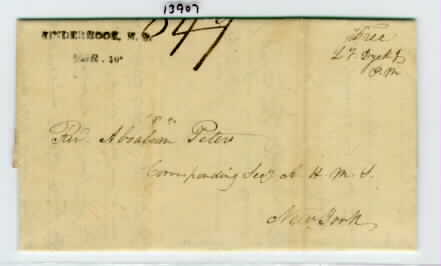 13907
KINDERHOOK, N. Y.
MAR. 10
Free
P.M
Revd. Abraham Peters
Corresponding Secy A. H. M. S.
New York